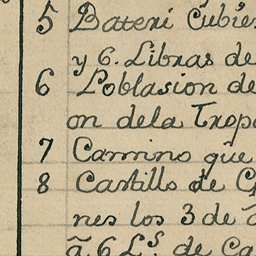 5 Bateri Cubie
y 6. Libras de
6 Poblasion de
on dela Trop
7 Camino que
8 Castillo de C
nes los 3 de
ã 6 L.s de Ca